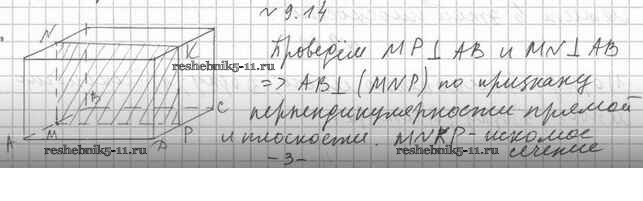 № 9.14
Проведём MP⊥AB и MN⊥AB
=> AB⊥(MNP) по признаку
перпендикулярности прямой
и плоскости. MNKP - искомое
сечение
- 3 -
N
K
B
C
A
M
D
P
reshebnik5-11.ru
reshebnik5-11.ru
reshebnik5-11.ru